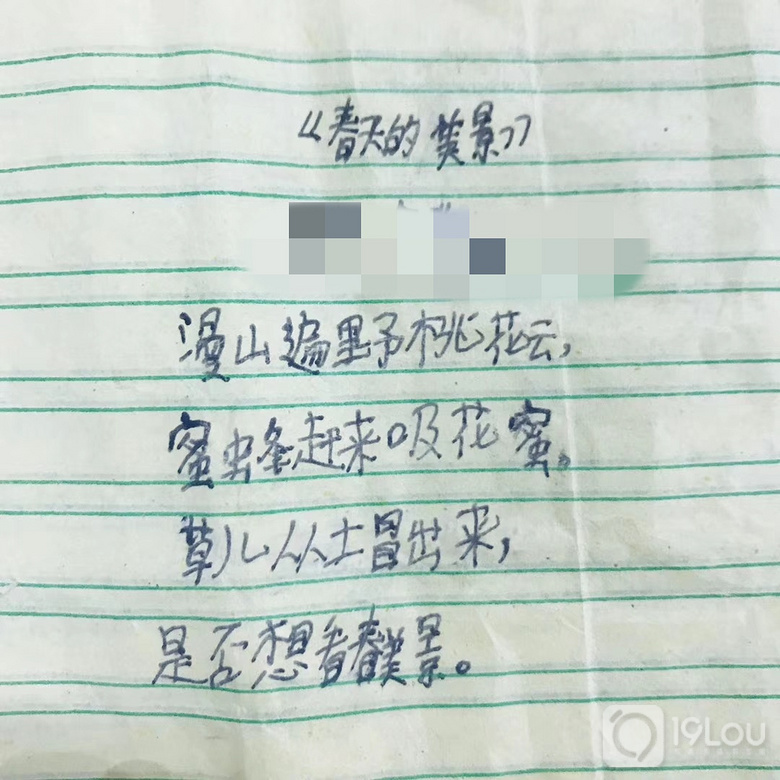 《春天的美景》
漫山遍野桃花云,
蜜蜂赶来吸花蜜。
草儿从土冒出来,
是否想看春美景。
19Lou